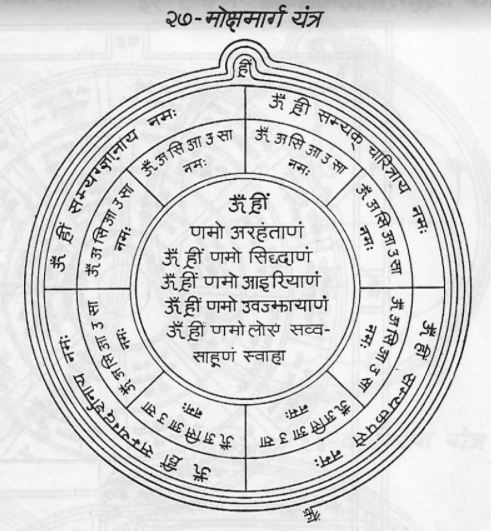 २७-मोक्षमार्ग यंत्र
ह्रीं
ॐ ह्रीं सम्यक् चारित्राय नमः
ॐ ह्रीं सम्यक्पसे नमः
ॐ ह्रीं सम्यग्दर्शनाय नमः
ॐ ह्रीं सम्यग्ज्ञानाय नमः
ॐ अ सि आ उ सा नमः
ॐ अ सि आ उ सा नमः
ॐ अ सि आ उ सा नमः
ॐ अ सि आ उ सा नमः
ॐ अ सि आ उ सा नमः
ॐ अ सि आ उ सा नमः
ॐ अ सि आ उ सा नमः
ॐ अ सि आ उ सा नमः
ॐ ह्रीं
णमो अरहंताणं
ॐ ह्रीं णमो सिद्धाणं
ॐ ह्रीं णमो आइरियाणं
ॐ ह्रीं णमो उवज्झायाणं
ॐ ह्रीं णमो लोए सव्व-
साहूणं स्वाहा